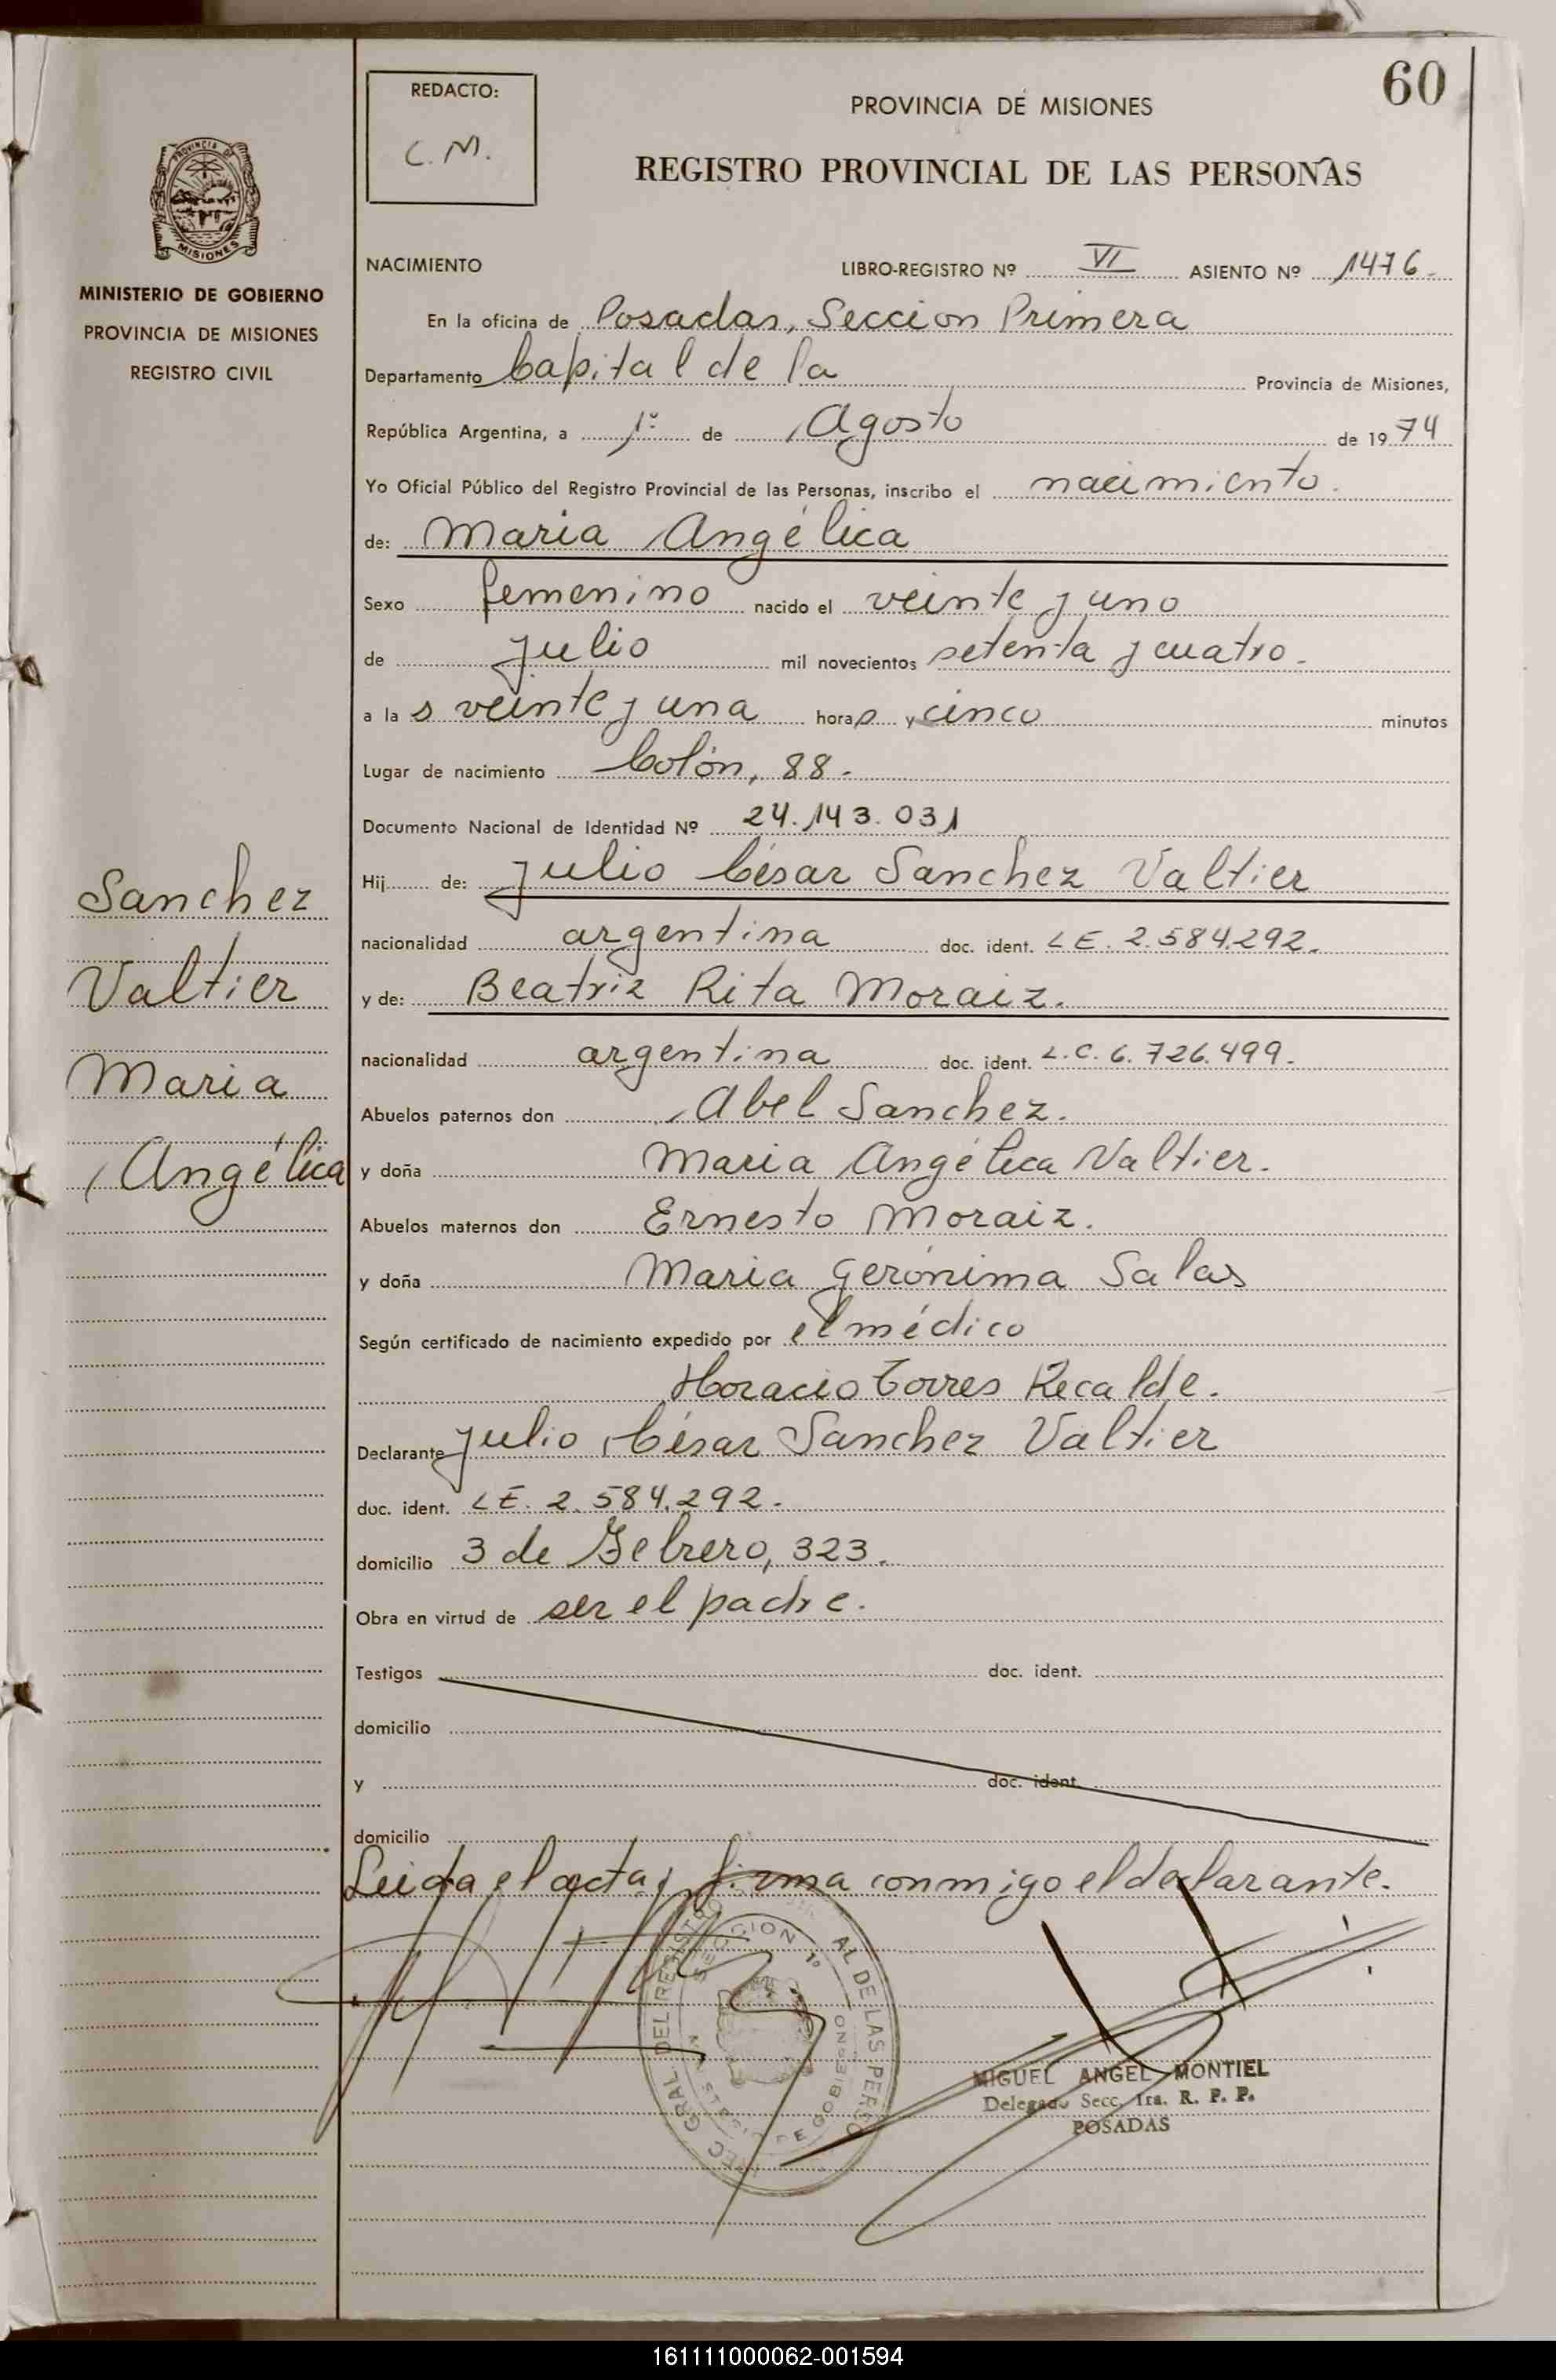 60
REDACTO:
C. M.
PROVINCIA DE MISIONES
REGISTRO PROVINCIAL DE LAS PERSONAS
PROVINCIA DE
MISIONES
MINISTERIO DE GOBIERNO
PROVINCIA DE MISIONES
REGISTRO CIVIL
Sanchez
Valtier
Maria
Angélica
NACIMIENTO LIBRO-REGISTRO Nº VI ASIENTO Nº 1476.
En la oficina de Posadas, Seccion Primera
Departamento Capital de la Provincia de Misiones,
República Argentina, a 1º de Agosto de 1974
Yo Oficial Público del Registro Provincial de las Personas, inscribo el nacimiento.
de: Maria Angélica
Sexo femenino nacido el veinte y uno
de julio mil novecientos setenta y cuatro.
a las veinte y una horas y cinco minutos
Lugar de nacimiento Colón, 88.
Documento Nacional de Identidad Nº 24.143.031
Hij de: Julio César Sanchez Valtier
nacionalidad argentina doc. ident. LE. 2.584.292.
y de: Beatriz Rita Moraiz.
nacionalidad argentina doc. ident. L.C. 6.726.499.
Abuelos paternos don Abel Sanchez.
y doña Maria Angélica Valtier.
Abuelos maternos don Ernesto Moraiz.
y doña Maria Gerónima Salas
Según certificado de nacimiento expedido por el médico
Horacio Torres Recalde.
Declarante Julio César Sanchez Valtier
doc. ident. LE. 2.584.292.
domicilio 3 de Febrero, 323.
Obra en virtud de ser el padre.
Testigos doc. ident.
domicilio
y doc. ident.
domicilio
Leida el acta y firma conmigo el declarante.
SECCION 1º
MIGUEL ANGEL MONTIEL
Delegado Secc. 1ra. R. P. P.
POSADAS
161111000062-001594